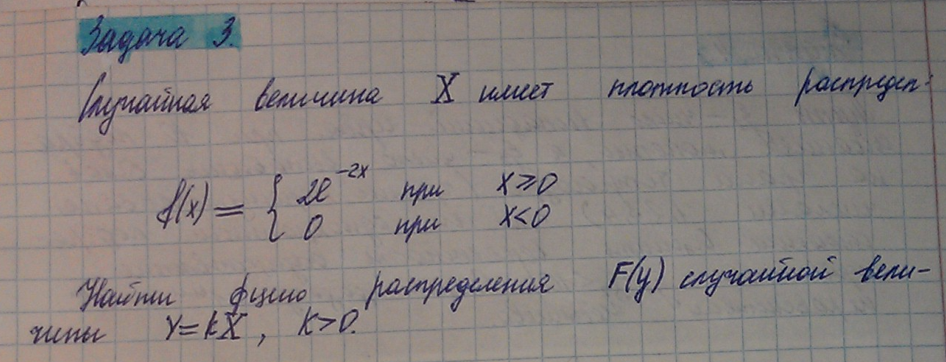 Задача 3.
Случайная величина X имеет плотность распредел-
f(x) = { 2e^{-2x} при x ≥ 0
0 при x < 0
Найти фцию распределения F(y) случайной вели-
чины Y = kX, k > 0.